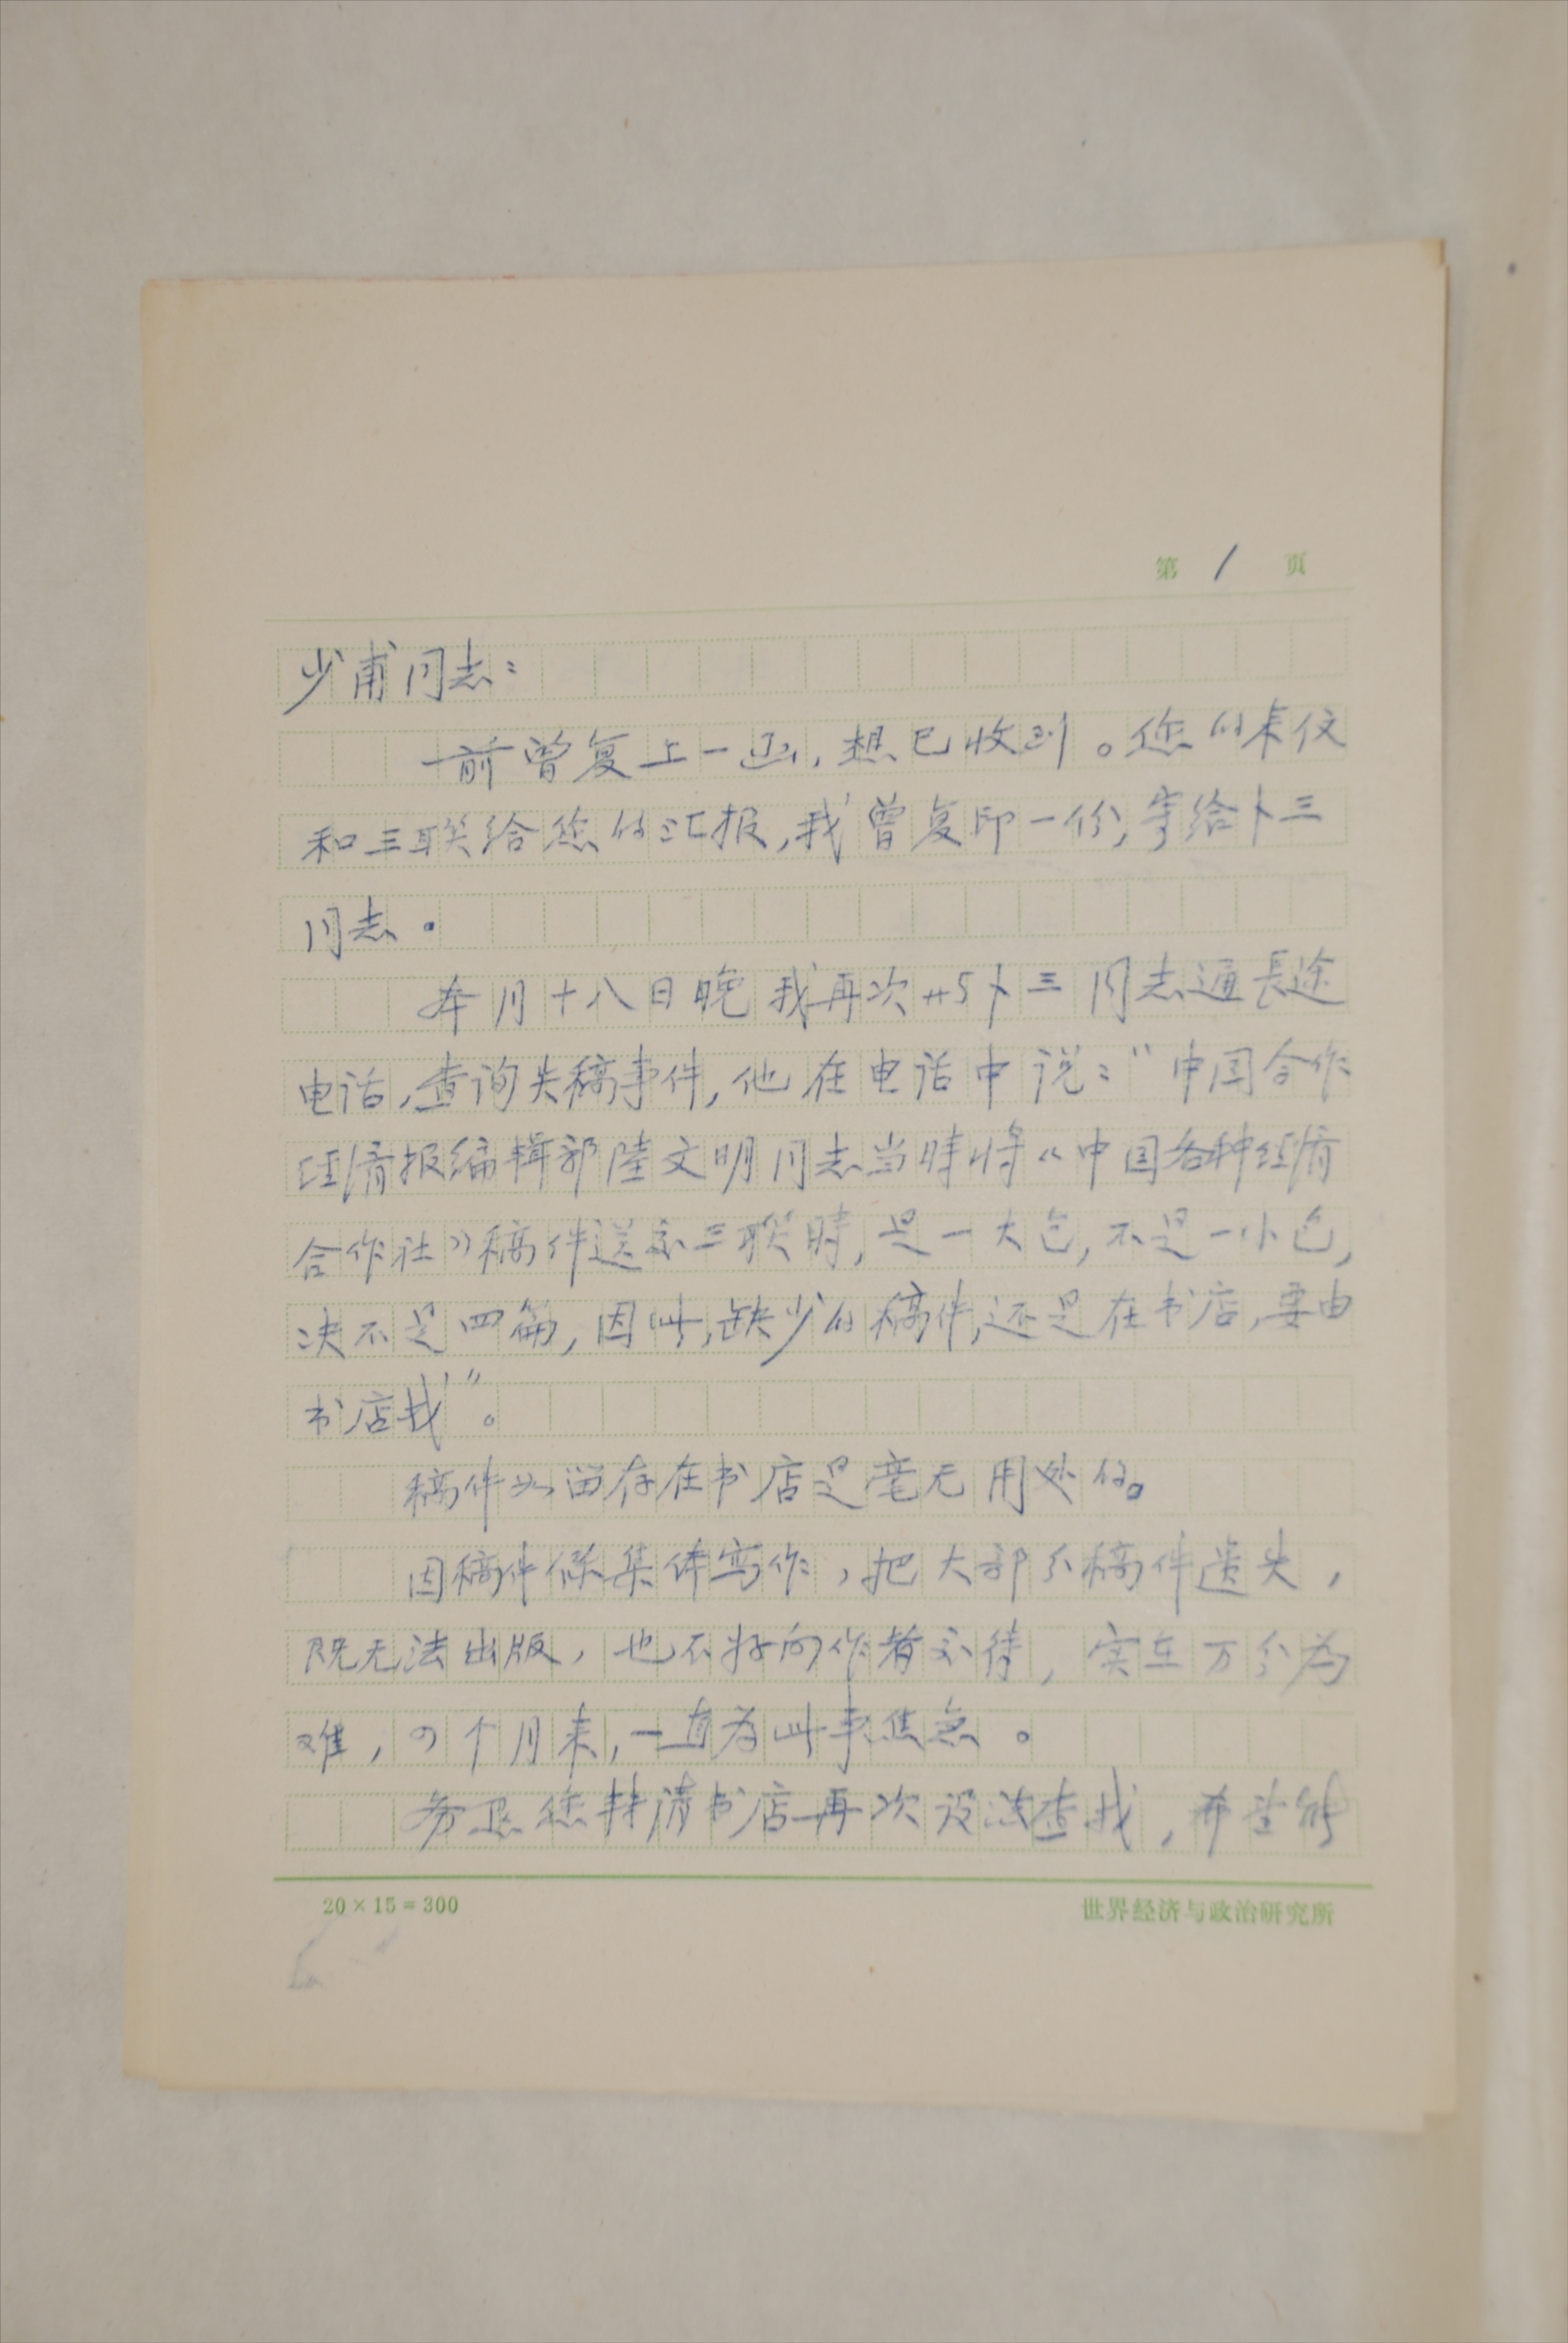 第 1 页
少甫同志：
前曾复上一函，想已收到。您的来仪
和三联给您的汇报，我曾复印一份，寄给卜三
同志。
本月十八日晚我再次与卜三同志通長途
电话，查询失稿事件，他在电话中说：“中国合作
经济报编辑部陸文明同志当時将《中国各种经济
合作社》稿件送交三联時，是一大包，不是一小包，
决不是四篇，因此，缺少的稿件，还是在书店，要由
书店找”。
稿件如留存在书店是毫无用处的。
因稿件係集体写作，把大部分稿件遗失，
既无法出版，也不好向作者交待，实在万分为
难，四个月来，一直为此事焦急。
务恳您转请书店再次设法查找，希望能
20×15=300
世界经济与政治研究所